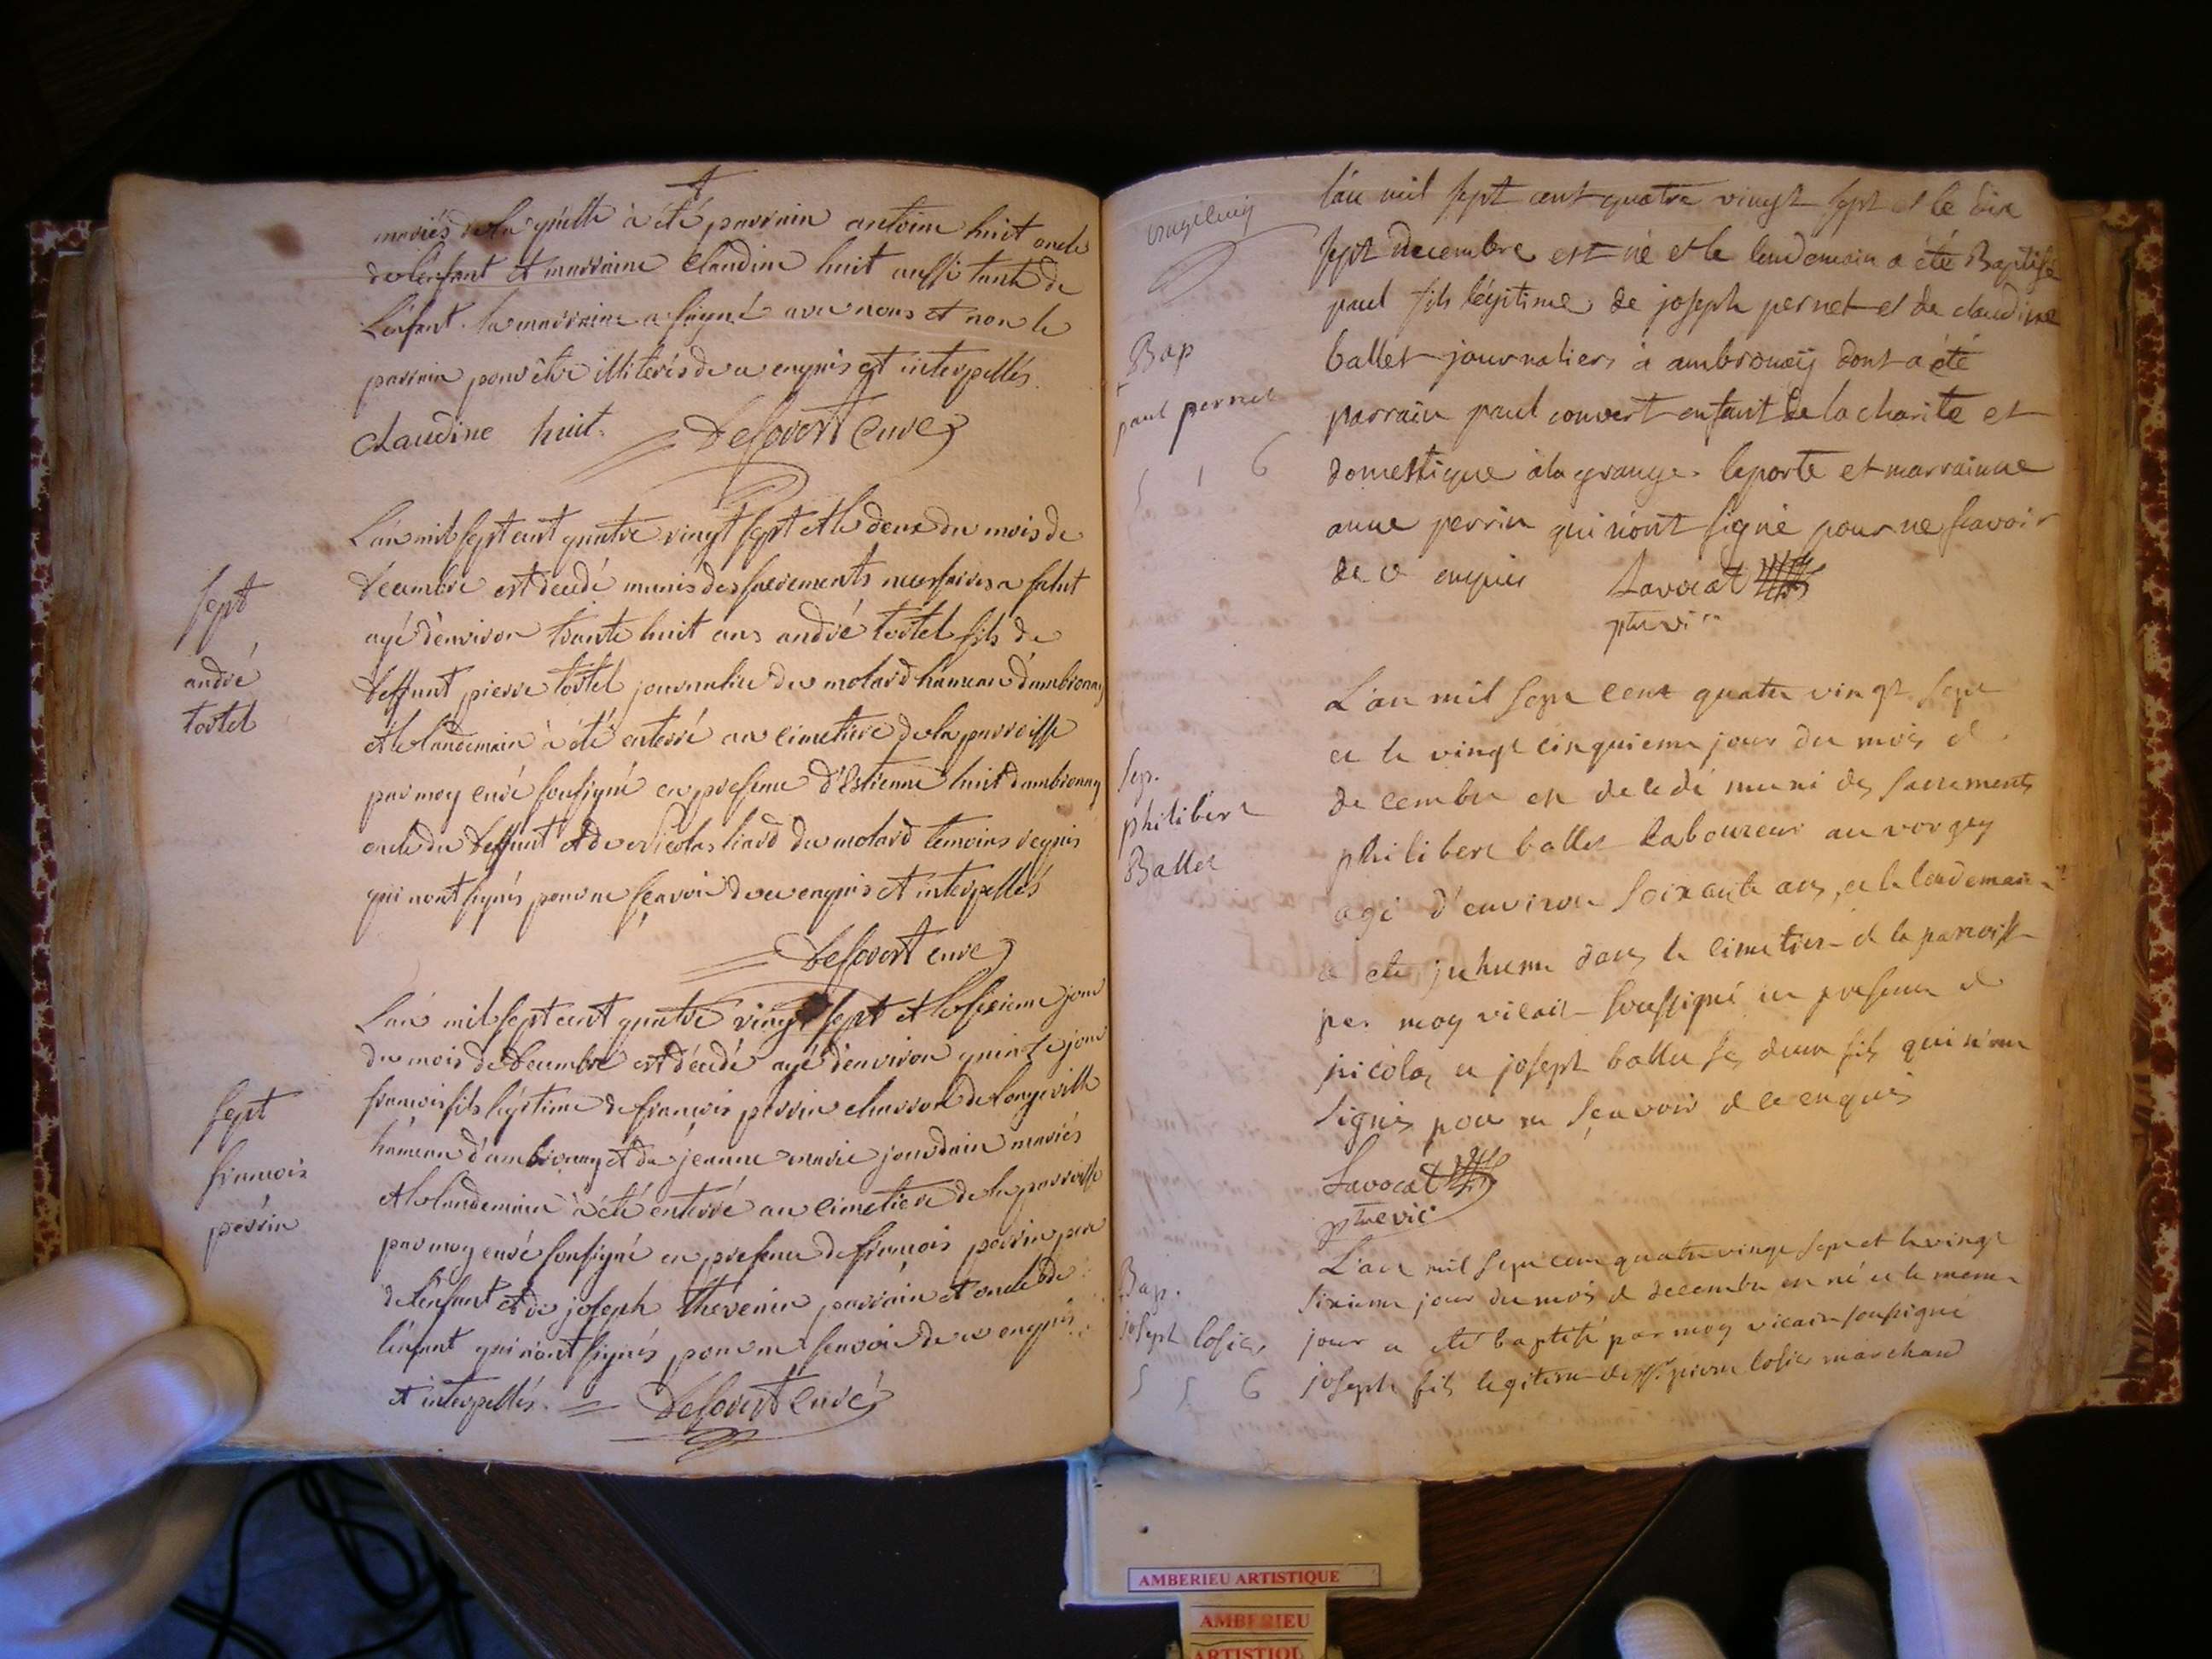 mariés de la quelle à été parrain antoine huit oncle
de l'enfant et marraine Claudine huit aussi tante de
L'enfant. la marraine a signé avec nous et non le
parrain pour être illiterés de ce enquis et interpellés.
claudine huit. Desovert curé
L'an mil sept cent quatre vingt sept et le deux du mois de
Decembre est decedé munis des sacrements necessaires a salut
agé d'environ trante huit ans andré tortel fils de
deffunt pierre tortel journalier du molard hameau d'ambronay
et le landemain à été enterré au cimetiere de la parroisse
par moy curé sousigné en presence d'Estienne huit d'ambronay
oncle du deffunt et de Nicolas liard du molard temoins requis
qui n'ont signés pour ne sçavoir de ce enquis et interpellés
Desovert curé
sept
andré
tortel
L'an mil sept cent quatre vingt sept et le sixieme jour
du mois de Decembre est décédé agé d'environ quinze jour
francois fils légitime de françois perrin charron de longeville
hameau d'ambronay et de jeanne marie jourdain mariés
et le landemain à été enterré au cimetiere de la parroisse
par moy curé sousigné en presence de françois perrin pere
de l'enfant et de joseph thevenin parrain et oncle de
l'enfant qui n'ont signés pour ne scavoir de ce enquis
et interpellés. Desovert curé
sept
francois
perrin
l'an mil sept cent quatre vingt sept et le dix
sept decembre est né et le lendemain a été Baptisé
paul fils légitime de joseph pernet et de claudine
ballet journaliers à ambronaÿ dont a été
parrain paul convert enfant de la charité et
domestique à la grange. la porte et marrainne
anne perrin qui n'ont signé pour ne scavoir
de ce enquis Lavocat
ptre vic
Bap
paul pernet
5 1 6
L'an mil sept cent quatre vingt sept
et le vingt cinquieme jour du mois de
decembre est decedé muni des sacrements
philibert ballet Laboureur au vorgey
agé d'environ soixante ans, et le lendemain
a eté inhumé dans le cimetiere de la parroisse
par moy vicaire soussigné en presence de
nicolas et joseph ballet ses deux fils qui n'ont
signés pour ne sçavoir de ce enquis
Lavocat
ptre vic.
sep.
philibert
Ballet
L'an mil sept cent quatre vingt sept et le vingt
sixieme jour du mois de decembre est né et le meme
jour a eté baptisé par moy vicaire soussigné
joseph fils legitime de sr. pierre losier marchand
Bap.
joseph losier
5 5 6
AMBERIEU ARTISTIQUE
AMBERIEU
ARTISTIQU